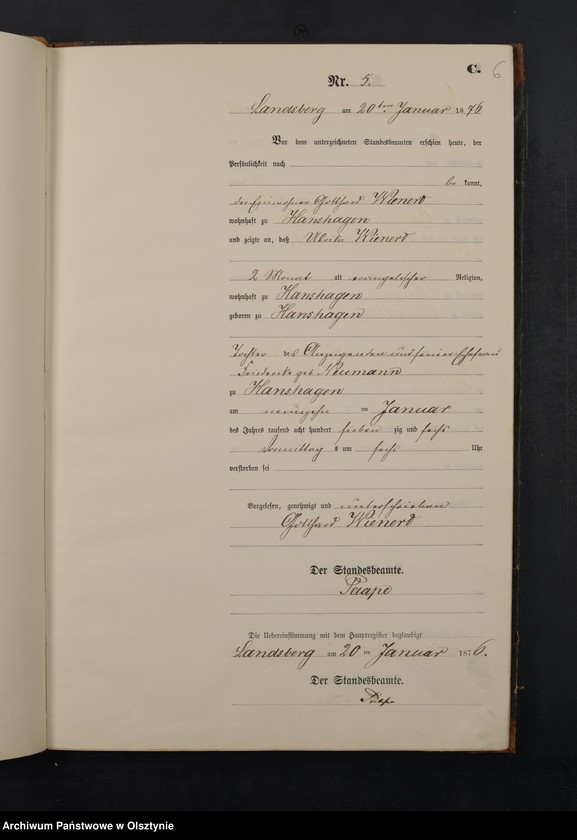 C. 6
Nr. 5.
Landsberg am 20ten Januar 1876
Vor dem unterzeichneten Standesbeamten erschien heute, der
Persönlichkeit nach
be kannt,
der Einwohner Gotthard Wienerd
wohnhaft zu Hanshagen
und zeigte an, daß Ulrike Wienerd
2 Monat alt evangelischer Religion,
wohnhaft zu Hanshagen
geboren zu Hanshagen
Tochter des Anzeigenden und seiner Ehefrau
Friederike geb Neumann
zu Hanshagen
am neunzehn ten Januar
des Jahres tausend acht hundert sieben zig und sechs
Vormittag s um sechs Uhr
verstorben sei
Vorgelesen, genehmigt und unterschrieben
Gotthard Wienerd
Der Standesbeamte.
Paape
Die Uebereinstimmung mit dem Hauptregister beglaubigt
Landsberg am 20 ten Januar 1876.
Der Standesbeamte.
Paape
Archiwum Państwowe w Olsztynie